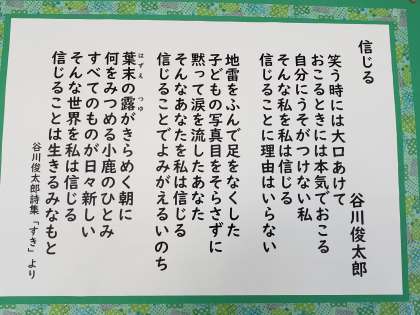 信じる
谷川俊太郎
笑う時には大口あけて
おこるときには本気でおこる
自分にうそがつけない私
そんな私を私は信じる
信じることに理由はいらない
地雷をふんで足をなくした
子どもの写真目をそらさずに
黙って涙を流したあなた
そんなあなたを私は信じる
信じることでよみがえるいのち
葉末の露がきらめく朝に
はずえ つゆ
何をみつめる小鹿のひとみ
すべてのものが日々新しい
そんな世界を私は信じる
信じることは生きるみなもと
谷川俊太郎詩集「すき」より